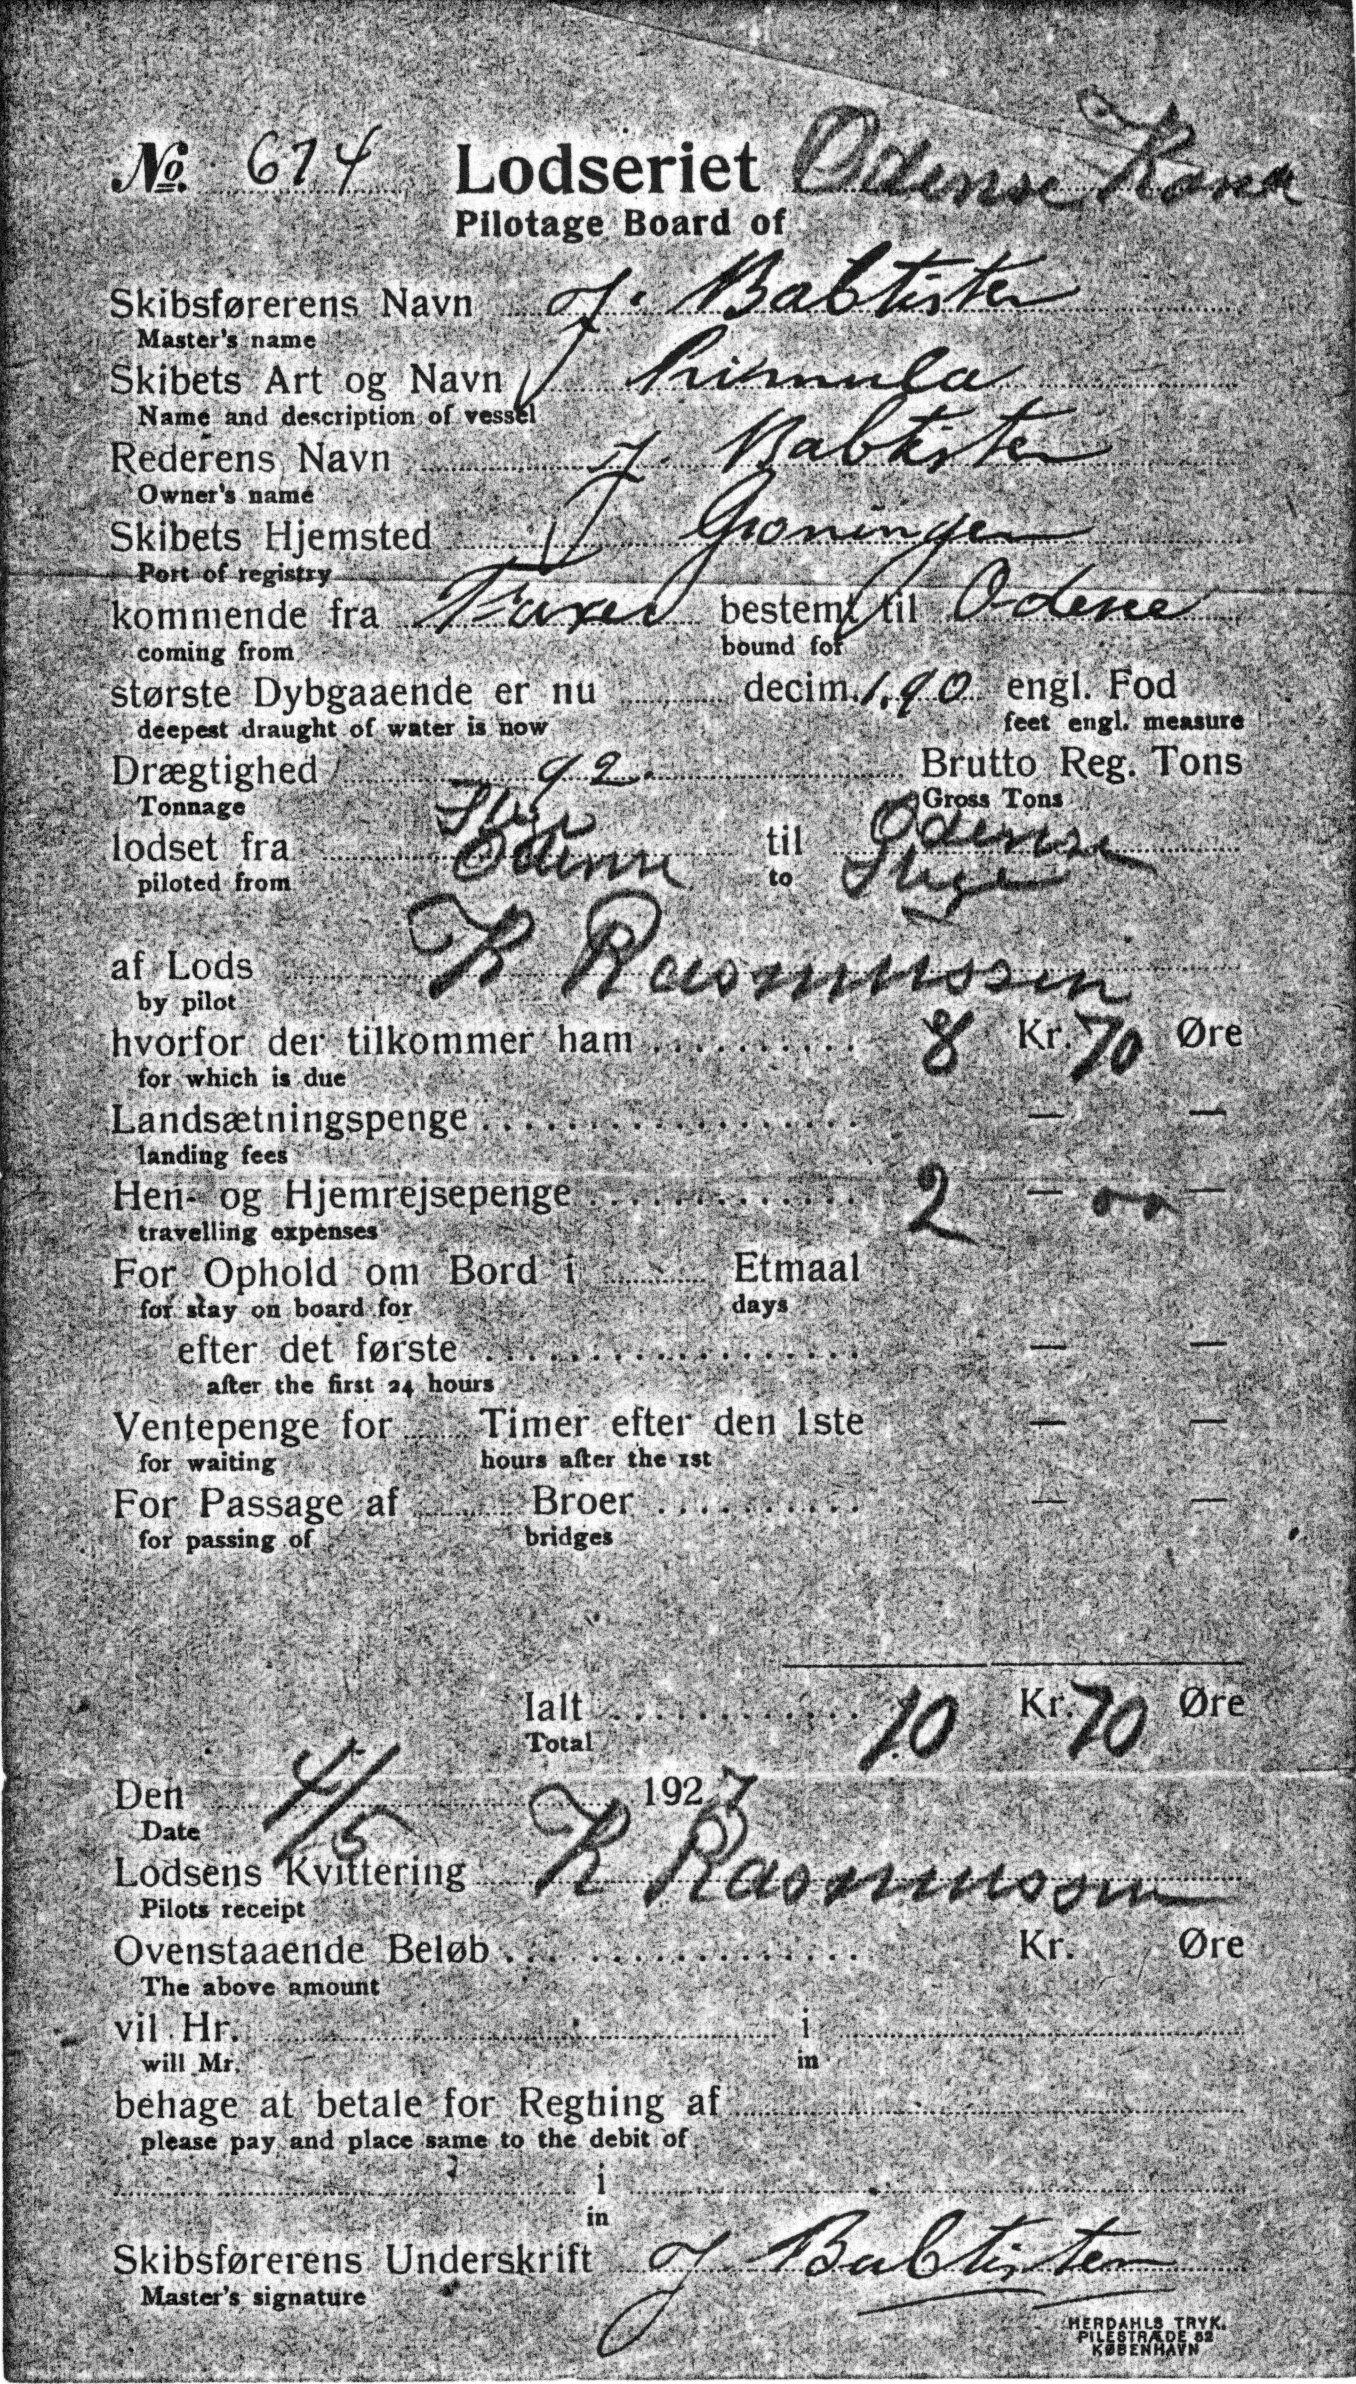 No. 674 Lodseriet Odense Kanal
Pilotage Board of
Skibsførerens Navn J. Babtister
Master's name
Skibets Art og Navn Primula
Name and description of vessel
Rederens Navn J. Babtister
Owner's name
Skibets Hjemsted Groningen
Port of registry
kommende fra Faxe bestemt til Odense
coming from bound for
største Dybgaaende er nu decim. 1.90 engl. Fod
deepest draught of water is now feet engl. measure
Drægtighed 92. Brutto Reg. Tons
Tonnage Gross Tons
Stige Odense
lodset fra Odense til Stige
piloted from to
af Lods K Rasmussen
by pilot
hvorfor der tilkommer ham 8 Kr. 70 Øre
for which is due
Landsætningspenge — —
landing fees
Hen- og Hjemrejsepenge 2 — 00 —
travelling expenses
For Ophold om Bord i Etmaal
for stay on board for days
efter det første — —
after the first 24 hours
Ventepenge for Timer efter den 1ste — —
for waiting hours after the 1st
For Passage af Broer — —
for passing of bridges
Ialt 10 Kr. 70 Øre
Total
Den 4/5 1927
Date
Lodsens Kvittering K Rasmussen
Pilots receipt
Ovenstaaende Beløb Kr. Øre
The above amount
vil Hr. i
will Mr. in
behage at betale for Regning af
please pay and place same to the debit of
i
in
Skibsførerens Underskrift J Babtister
Master's signature
HERDAHLS TRYK.
PILESTRÆDE 52
KØBENHAVN